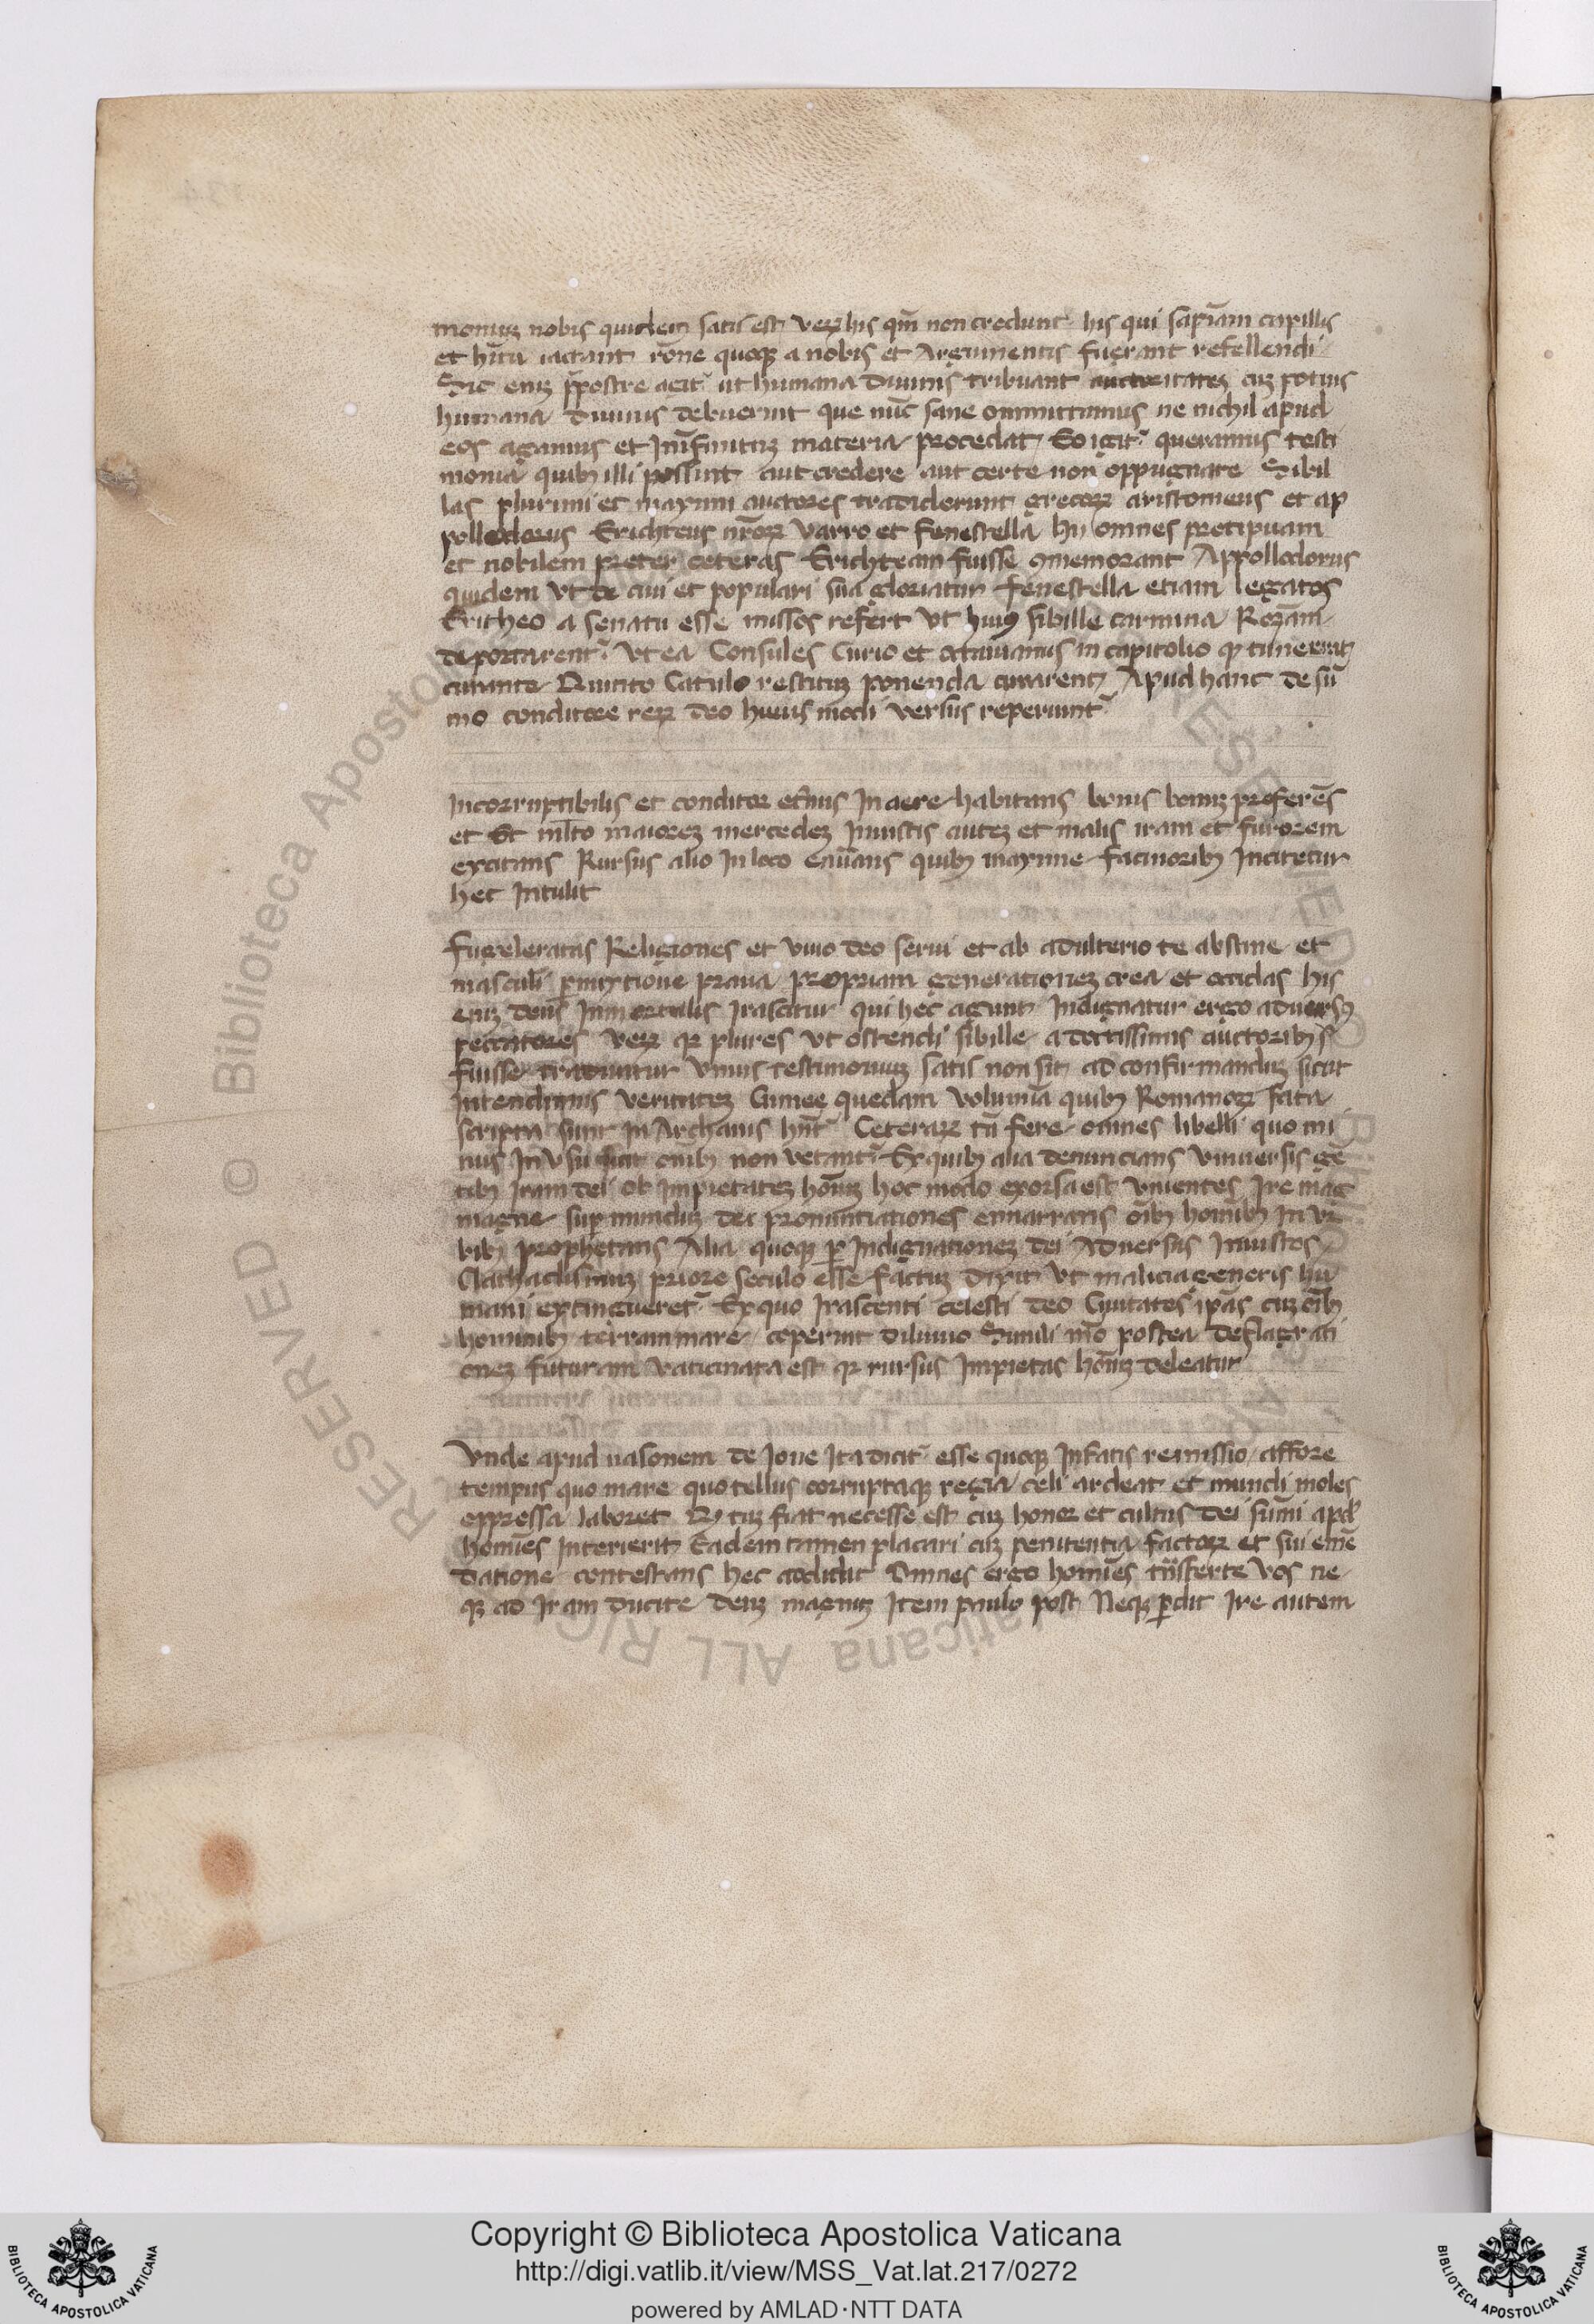 moniuȝ nobis quidem satis est veꝝ his qm̄ non credunt his qui sapiam̄ capillis
et hitu iactant rōne quoqꝫ a nobis et Argumentis fuerant refellendi
Sic enīȝ p̄postre agit᷑ ut humana diuinis tribuant auctoritateȝ cuȝ potius
humana diuinis debuerint que nūc sane ommittamus ne nichil apud
eos agamus et Inīfinituȝ materia procedat Eo igit᷑ queramus testi
monia quibȝ illi possint aut credere aut certe non oppugnare Sibil
las plurimi et maximi auctores tradiderunt grecoꝝ aristoneus et ap
pollodorus Erichteus nr̄oꝝ Varro et fenestella hii omnes precipuam
et nobilem preter ceteras Erichteam fuisse ꝯmemorant Appollodorus
quidem vt de ciui et populari sua gloriatur fenestella etiam legatos
Eritheo a senatu esse missos refert vt huiꝰ sibille carmina Romam
deportarent᷑ vt ea Consules Curio et octauianus in capitolio qꝫ tunc erat
curante Quinto Catulo restituȝ ponenda curarent Apud hanc de sū
mo conditore reꝝ deo huius modi versus reperiunt᷑
Incorruptibilis et conditor et̄nus In aere habitans bonis bonuȝ preferēs
et Et ml̄to maioreȝ mercedeȝ Iniustis auteȝ et malis iram et furorem
excitans Rursus alio In loco enūans quibȝ maxime facinoribȝ Incitetur
hec Intulit
fuge leratas Religiones et viuo deo serui et ab adulterio te abstine et
masculi p̄mixtione praua propriam generationeȝ crea et occidas his
eniȝ deus Inmortalis Irascitur qui hec agunt Indignatur ergo aduersꝰ
peccatores veꝝ qꝫ plures vt ostendi sibille a doctissimis auctoribȝ
fuisse traduntur vnius testimoniuȝ satis non sit ad confirmanduȝ sicut
Intendimus veritateȝ Cumee quedam volumīa quibȝ Romanoꝝ fata
scripta sunt In Archanis hn̄t᷑ Ceteraꝝ tn̄ fere omnes libelli quo mi
nus In vsu sint oībȝ non vetant᷑ Ex quibȝ alia denuncians vniuersis gē
tibȝ Iram dei ob Impietateȝ hoīuȝ hoc modo exorsa est Vnientes Ire mag
magne sup̄ munduȝ dei pronuntiationes enarrans oībȝ homībȝ In vr
bibȝ prophetans Alia quoqꝫ ꝑ Indignationeȝ dei Aduersus Iniustos
Clathaclismuȝ priore seculo esse factuȝ dixit vt malicia generis hu
mani extingueret᷑ Ex quo Irascenti celesti deo Ciuitates ipās cuȝ oībȝ
hominibȝ terram mare operint diluuio Simili mō postea deflagrati
oneȝ futuram vaticinata est qꝫ rursus Impietas hoīuȝ deleatur
Vnde apud nasonem de Ioue Ita dicit᷑ esse quoqꝫ In fatis remissio affore
tempus quo mare quo tellus corruptaqꝫ regia celi ardeat et mundi moles
oppressa laboret Qꝫ tuȝ fiat necesse est cuȝ honor et cultus dei sum̄i apd̄
homīes Interierit Eadem tamen placari cuȝ penitentia factoꝝ et sui emē
datione contestans hec addidit Omnes ergo homīes trāsferte vos ne
qꝫ ad Iram ducite deuȝ magnuȝ Item paulo post Neqꝫ ꝑdit Ire autem
RESERVED © Biblioteca Apostolica Vaticana ALL RIG
RESERVED
Copyright © Biblioteca Apostolica Vaticana
http://digi.vatlib.it/view/MSS_Vat.lat.217/0272
powered by AMLAD·NTT DATA
BIBLIOTECA APOSTOLICA VATICANA
BIBLIOTECA APOSTOLICA VATICANA